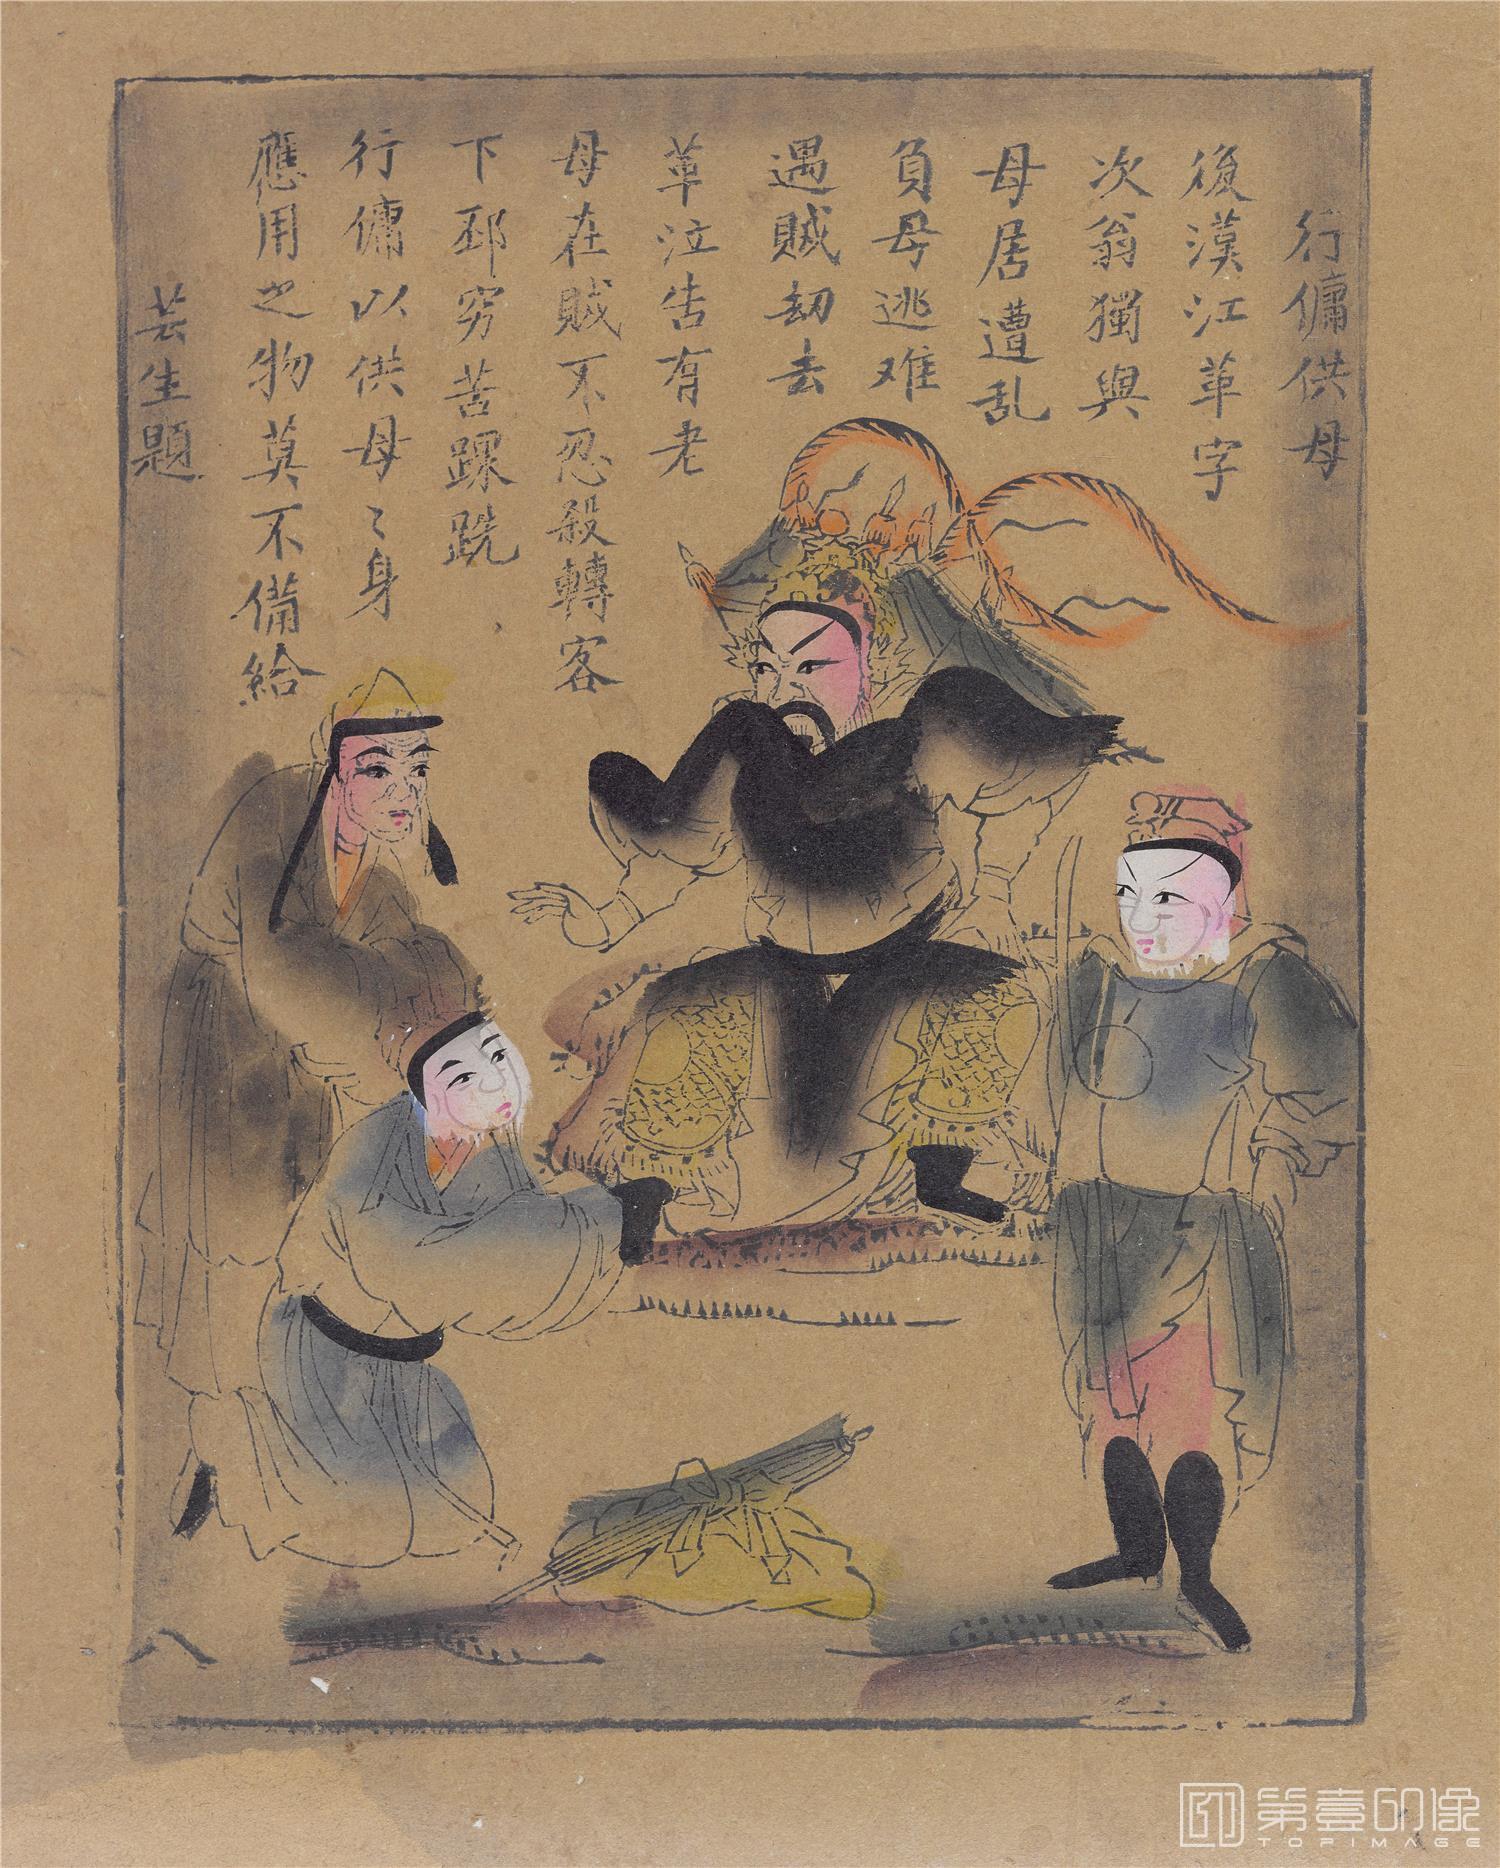 行傭供母
後漢江革字
次翁獨與
母居遭乱
負母逃难
遇賊劫去
革泣告有老
母在賊不忍殺轉客
下邳穷苦踝跣
行傭以供母〻身
應用之物莫不備給
芸生題
八
第壹印像
TOPIMAGE